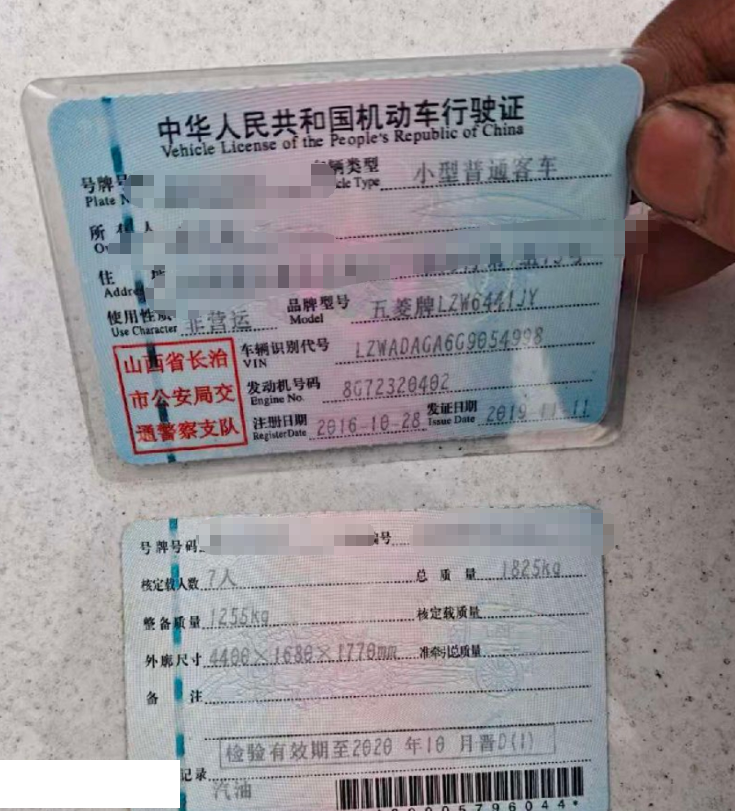 中华人民共和国机动车行驶证
Vehicle License of the People's Republic of China
号牌号 车辆类型 小型普通客车
Plate Type
所
住 所
Address
使用性质 非营运 品牌型号 五菱牌LZW6441JY
Use Character Model
山西省长治
市公安局交
通警察支队
车辆识别代号 LZWADAGA6G9054998
VIN
发动机号码 8G72320402
Engine No.
注册日期 2016-10-28 发证日期 2019-11-11
Register Date Issue Date
号牌号码 编号
核定载人数 7人 总质量 1825kg
整备质量 1255kg 核定载质量
外廓尺寸 4400×1680×1770mm 准牵引总质量
备 注
检验有效期至2020年10月晋D(1)
记录
汽油